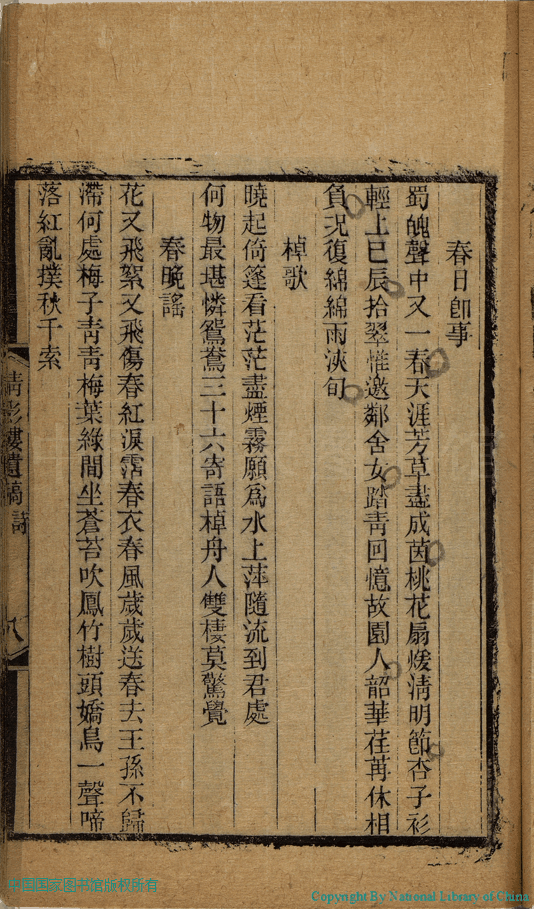 春日卽事
蜀魄聲中又一春天涯芳草盡成茵桃花扇煖淸明節杏子衫
輕上巳辰拾翠惟邀鄰舍女踏靑回憶故園人韶華荏苒休相
負况復綿綿雨浹旬
棹歌
曉起倚篷看茫茫盡煙霧願爲水上萍隨流到君處
何物最堪憐鴛鴦三十六寄語棹舟人雙棲莫驚覺
春晚謠
花又飛絮又飛傷春紅淚霑春衣春風歲歲送春去王孫不歸
滯何處梅子靑靑梅葉綠閒坐蒼苔吹鳳竹樹頭嬌鳥一聲啼
落紅亂撲秋千索
淸影樓遺稿 詩 八
中国国家图书馆版权所有
Copyright By National Library of China